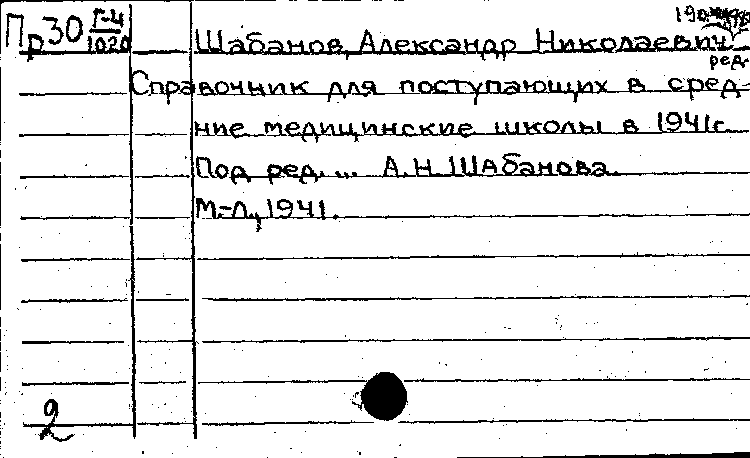 Пр30 Г-4/1020
Шабанов, Александр Николаевич
ред.
Справочник для поступающих в сред-
ние медицинские школы в 1941г.
Под ред. ... А.Н.Шабанова.
М.-Л., 1941.
2